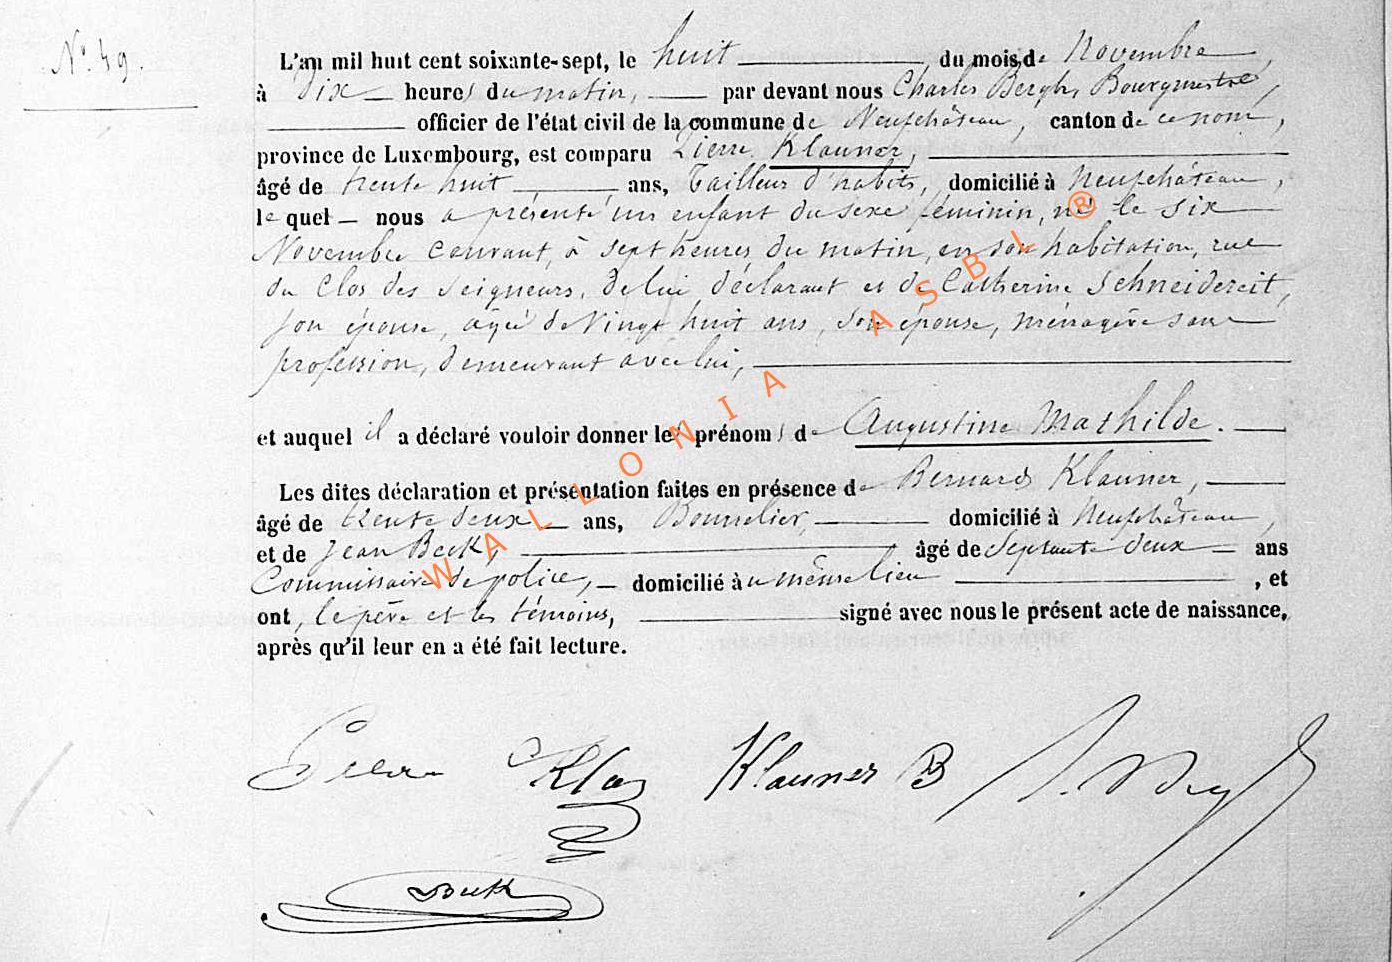 N° 49.
L'an mil huit cent soixante-sept, le huit du mois de Novembre,
à Dix heures du matin, par devant nous Charles Bergh, Bourgmestre,
officier de l'état civil de la commune de Neufchâteau, canton de ce nom,
province de Luxembourg, est comparu Pierre Klauner,
âgé de trente huit ans, Tailleur d'habits, domicilié à Neufchâteau,
le quel nous a présenté un enfant du sexe féminin, né le six
Novembre courant, à sept heures du matin, en son habitation, rue
du Clos des Seigneurs, De lui déclarant et de Catherine Schneidereit,
son épouse, agée de Vingt huit ans, son épouse, ménagère sans
profession, demeurant avec lui,
et auquel il a déclaré vouloir donner les prénoms de Augustine Mathilde.
Les dites déclaration et présentation faites en présence de Bernard Klauner,
âgé de trente deux ans, Bonnelier, domicilié à Neufchâteau,
et de Jean Beck, âgé de Septante deux ans
Commissaire de police, domicilié au même lieu, et
ont, le père et les témoins, signé avec nous le présent acte de naissance,
après qu'il leur en a été fait lecture.
Klauner B
Beck
WALLONIA ASBL ®